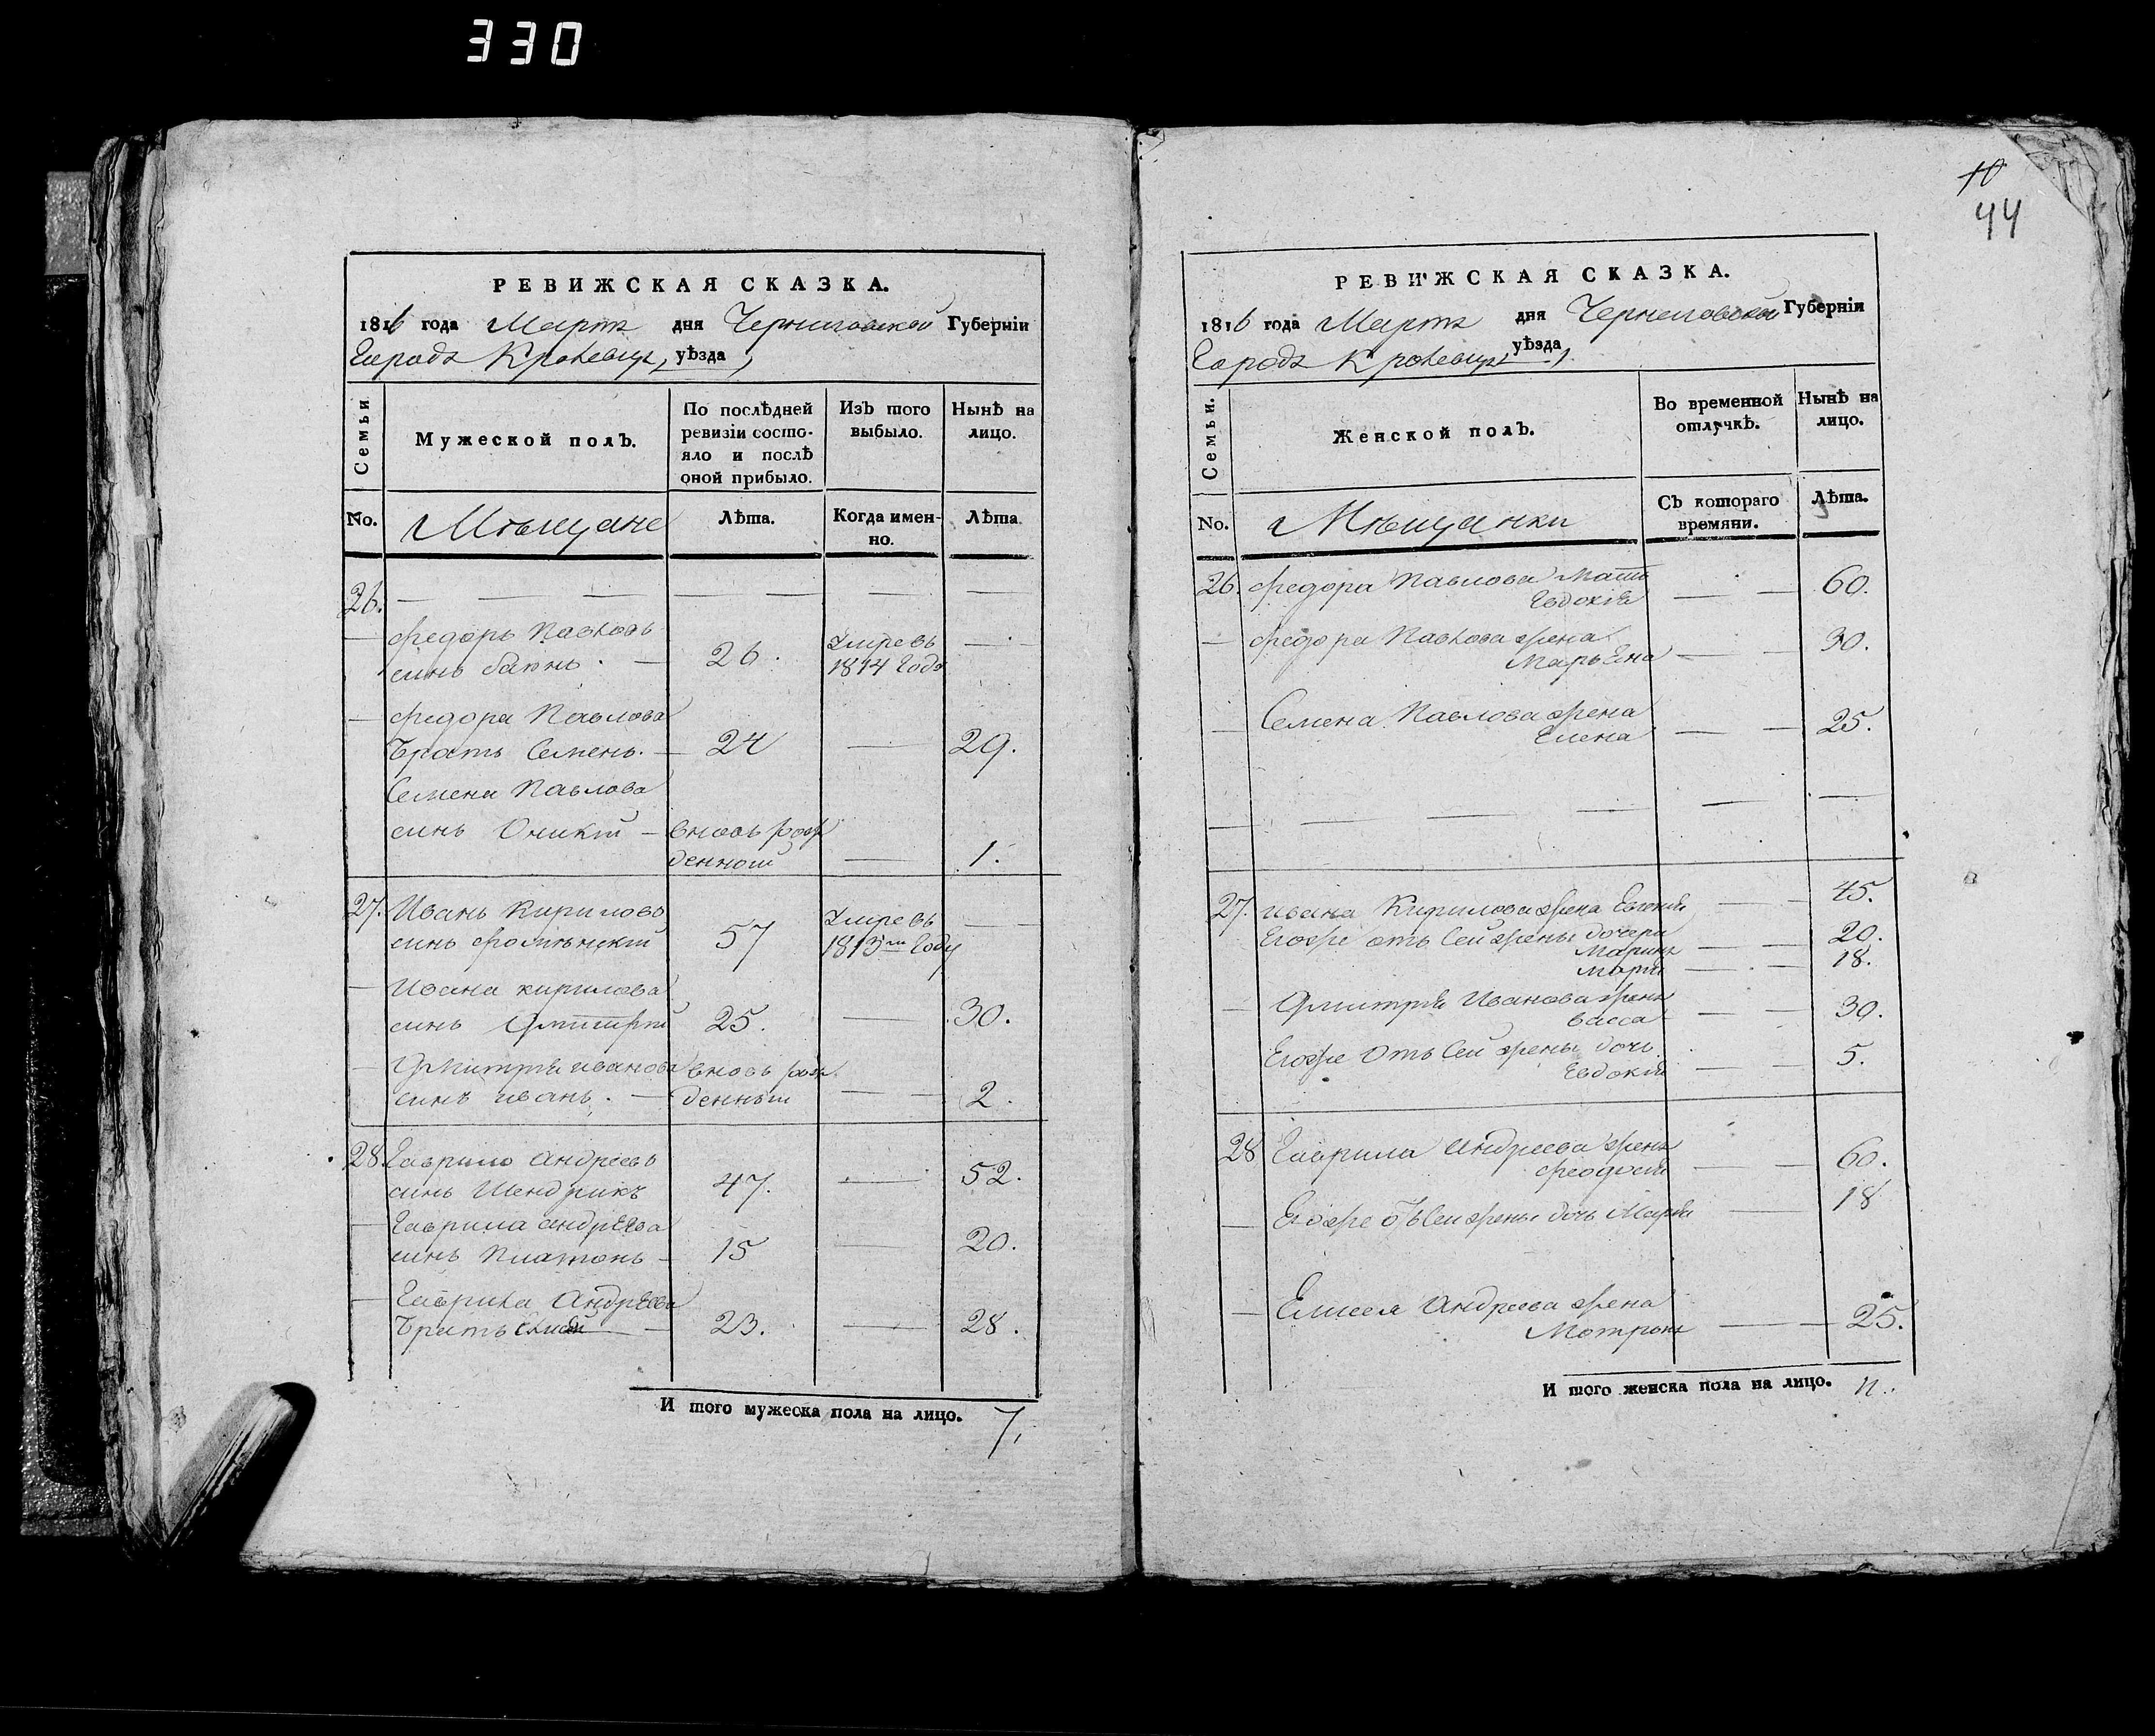 330
РЕВИЖСКАЯ СКАЗКА.
1816 года Марта дня Черниговской Губерніи
Города Кролевца, уѣзда
Семьи
Мужеской полъ.
По послѣдней ревизіи состо-яло и послѣ оной прибыло.
Изъ того выбыло.
Нынѣ на лицо.
No.
Мѣщане
Лѣта.
Когда имен-но.
Лѣта
26.
Федоръ Павловъ
синъ 26. Умре въ
1814 Года
Федора Павлова
Братъ Семенъ. 24 29.
Семена Павлова
синъ Оникій вновь рож
денной 1.
27. Иванъ Кириловъ
синъ 57 Умре въ
1813м Году
Ивана кирилова
синъ Дмитрій 25. 30.
Дмитрія иванова вновь рож
синъ иванъ. денный 2.
28. Гаврило Андреевъ
синъ Шендрикъ 47. 52.
Гаврила андрѣева
синъ Платонъ 15 20.
Гаврила Андрѣева
Братъ 23. 28.
И того мужеска пола на лицо. 7.
10
44
РЕВИЖСКАЯ СКАЗКА.
1816 года Марта дня Черниговской Губерніи
Города Кролевца уѣзда
Семьи.
Женской полъ.
Во временной отлучкѣ.
Нынѣ на лицо.
No.
Мѣщанки
Съ котораго времяни.
Лѣта.
26. Федора Павлова Мать
Евдокія 60.
Федора Павлова жена
Марьяна 30.
Семена Павлова жена
Елена 25.
27. ивана Кирилова жена Евгенія 45.
Егоже отъ Сей жены дочери
Марина 20.
Марія 18.
Дмитрія Иванова жена
Васса 30.
Егоже Отъ Сей жены дочь
Евдокія 5.
28 Гаврила Андреева жена
Феодосія 60.
Егоже отъ Сей жены дочь Марія 18
Елисея Андреева жена
Мотрона 25.
И того женска пола на лицо. 11.